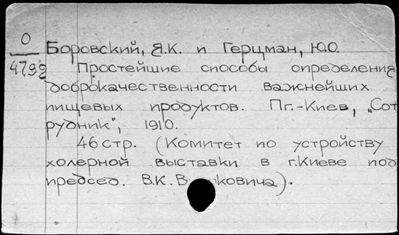 О
4799
Боровский, Я.К. и Герцман, Ю.О.
Простейшие способы определения
доброкачественности важнейших
пищевых продуктов. Пг.-Киев, „Сот
рудник", 1910.
46 стр. (Комитет по устройству
холерной выставки в г.Киеве под
председ. В.К.